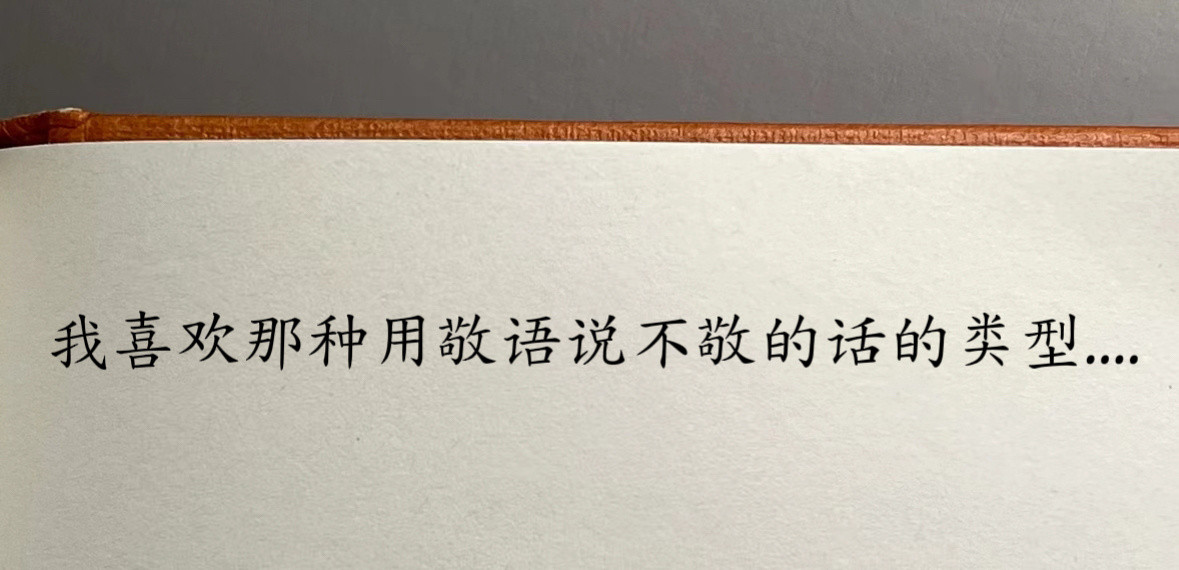 我喜欢那种用敬语说不敬的话的类型....